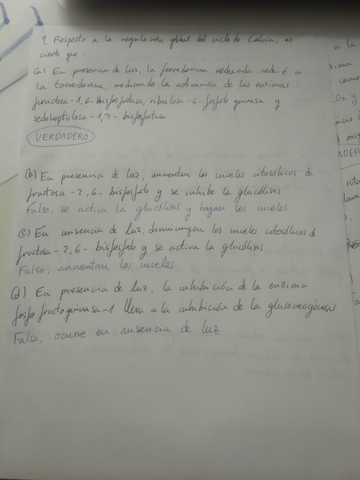 9. Respecto a la regulación global del ciclo de Calvin, es
cierto que:
(a) En presencia de luz, la ferredoxina reducida cede é a
la tioredoxina, mediando la activación de las enzimas
fructosa-1,6-bisfosfatasa, ribulosa-5-fosfato quinasa y
sedoheptulosa-1,7-bisfosfatasa
VERDADERO
(b) En presencia de luz, aumentan los niveles citosólicos de
fructosa-2,6-bisfosfato y se inhibe la glucólisis.
Falso, se activa la glucólisis y bajan los niveles
(c) En ausencia de luz, disminuyen los niveles citosólicos de
fructosa-2,6-bisfosfato y se activa la glucólisis.
Falso, aumentan los niveles
(d) En presencia de luz, la inhibición de la enzima
fosfofructoquinasa-1 lleva a la inhibición de la gluconeogénesis
Falso, ocurre en ausencia de luz